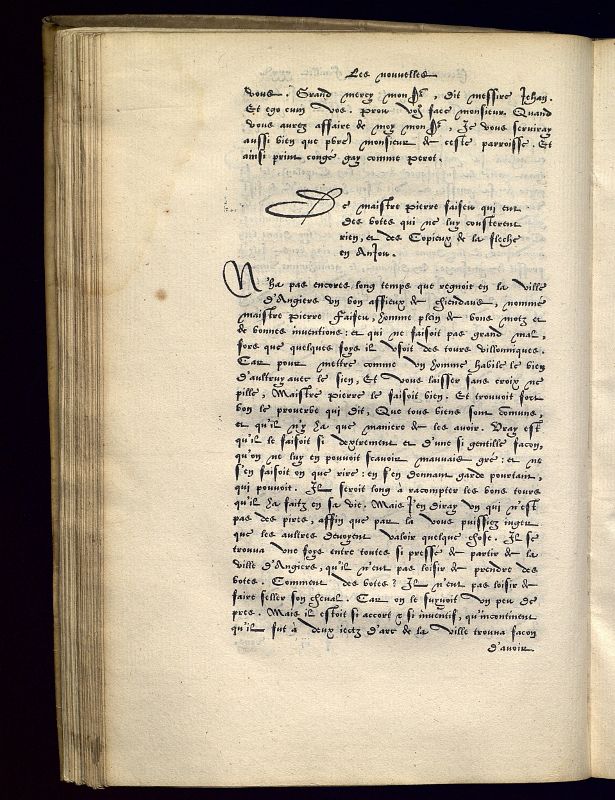 Les nouvelles
vous. Grand mercy mons^r, dit messire Jehan.
Et ego cum vos. Prou vo^9 face monsieur. Quand
vous aurez affaire de moy mons^r, Je vous serviray
aussi bien que p̃bre monsieur de ceste parroisse. Et
ainsi print congé gay comme Perot.
De maistre Pierre faifeu qui eut
des botes qui ne luy cousterent
rien, et des Copieux de la fleche
en Anjou.
N'ha pas encores long temps que regnoit en la ville
d'Angiers un bon affieux de chiendans, nommé
maistre Pierre Faifeu, homme plein de bons motz et
de bonnes inventions: et qui ne faisoit pas grand mal,
fors que quelques foys il usoit des tours villonniques.
Car pour mettre comme un homme habile le bien
d'aultruy avec le sien, Et vous laisser sans croix ne
pille, Maistre Pierre le faisoit bien. Et trouvoit fort
bon le proverbe qui dit, Que tous biens sont comuns,
et qu'il n'y ha que maniere de les avoir. Vray est
qu'il le faisoit si dextrement et d'une si gentille façon,
qu'on ne luy en pouvoit scavoir mauvais gré: et ne
s'en faisoit on que rire: en s'en donnant garde pourtant,
qui pouvoit. Il seroit long à racompter les bons tours
qu'il ha faitz en sa vie. Mais j'en diray un qui n'est
pas des pires, affin que par la vous puissiez juger
que les aultres devoyent valoir quelque chose. Il se
trouva une foys entre toutes si pressé de partir de la
ville d'Angiers, qu'il n'eut pas loisir de prendre des
botes. Comment des botes? Il n'eut pas loisir de
faire seller son cheval. Car on le suyvoit un peu de
pres. Mais il estoit si accort & si inventif, qu'incontinent
qu'il fut à deux jectz d'arc de la ville trouva façon
d'avoir